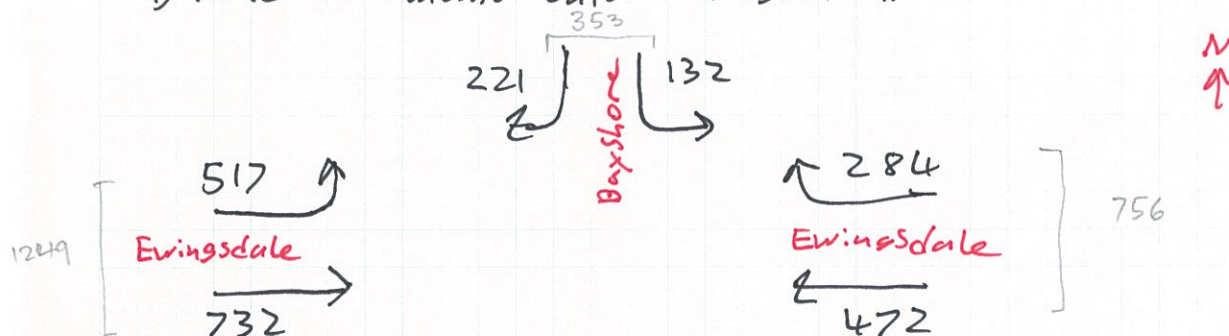 353
221 Bayshore 132
N
517 284
1249 Ewingsdale Ewingsdale 756
732 472